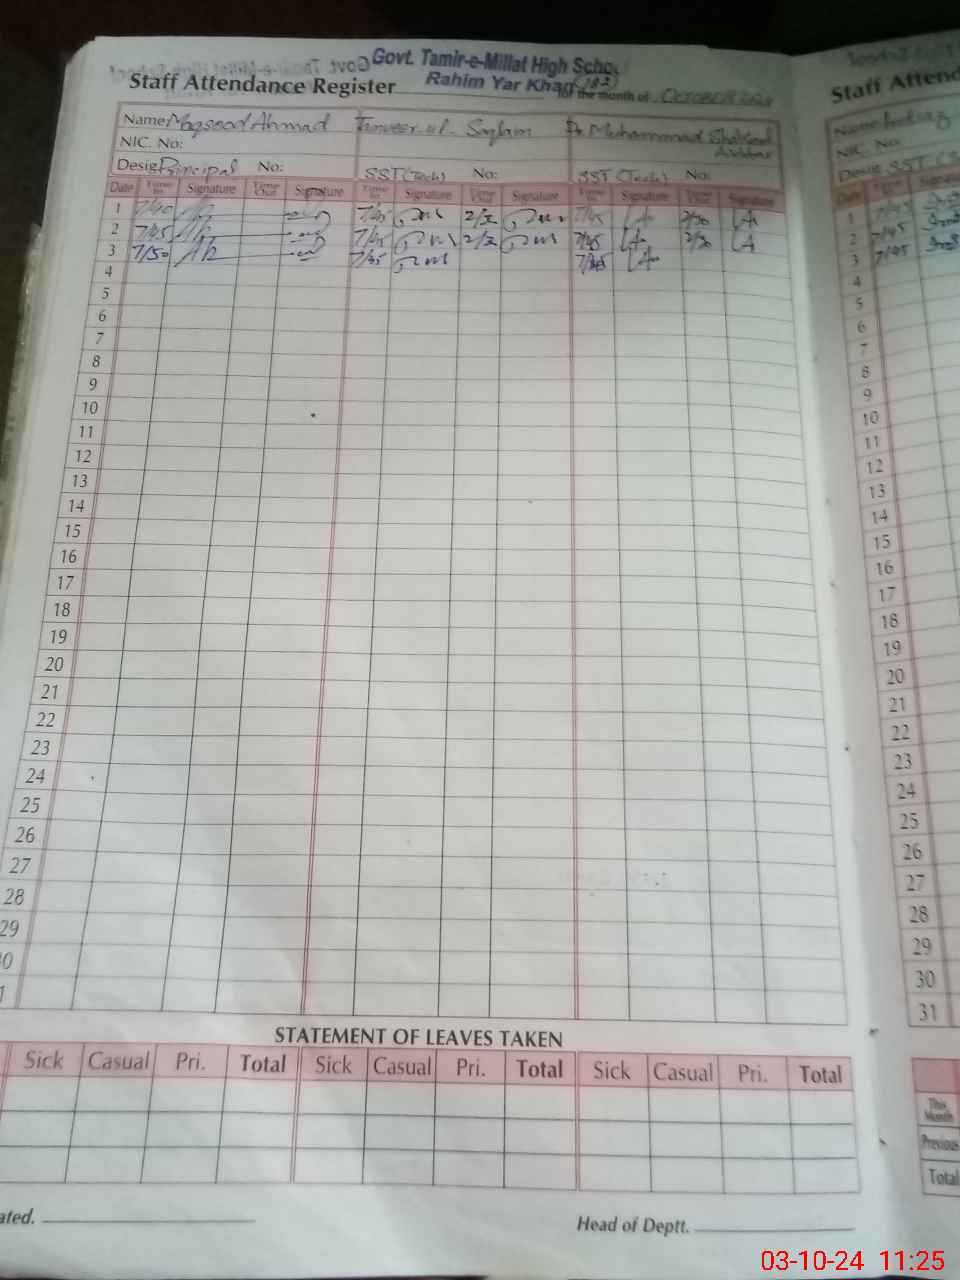 Govt. Tamir-e-Millat High Scho
Rahim Yar Khan
Staff Attendance Register for the month of October 2024
Name: Maqsood Ahmad Tanveer-ul- Dr Muhammad
NIC. No:
Desig: Principal No: SST (Tech) No: SST (Tech) No:
Date Time In Signature Time Out Signature Time In Signature Time Out Signature Time In Signature Time Out Signature
1 7/40 7/45 2/30 7/45 2/30
2 7/45 7/45 2/30 7/45 2/30
3 7/50 7/45 7/45
4
5
6
7
8
9
10
11
12
13
14
15
16
17
18
19
20
21
22
23
24
25
26
27
28
29
0
1
STATEMENT OF LEAVES TAKEN
Sick Casual Pri. Total Sick Casual Pri. Total Sick Casual Pri. Total
ated. Head of Deptt.
Staff Attend
Name:
NIC. No.
Desig: SST
Signatu
1 7/45
2 7/45
3 7/45
4
5
6
7
8
9
10
11
12
13
14
15
16
17
18
19
20
21
22
23
24
25
26
27
28
29
30
31
This Month
Previous
Total
03-10-24 11:25